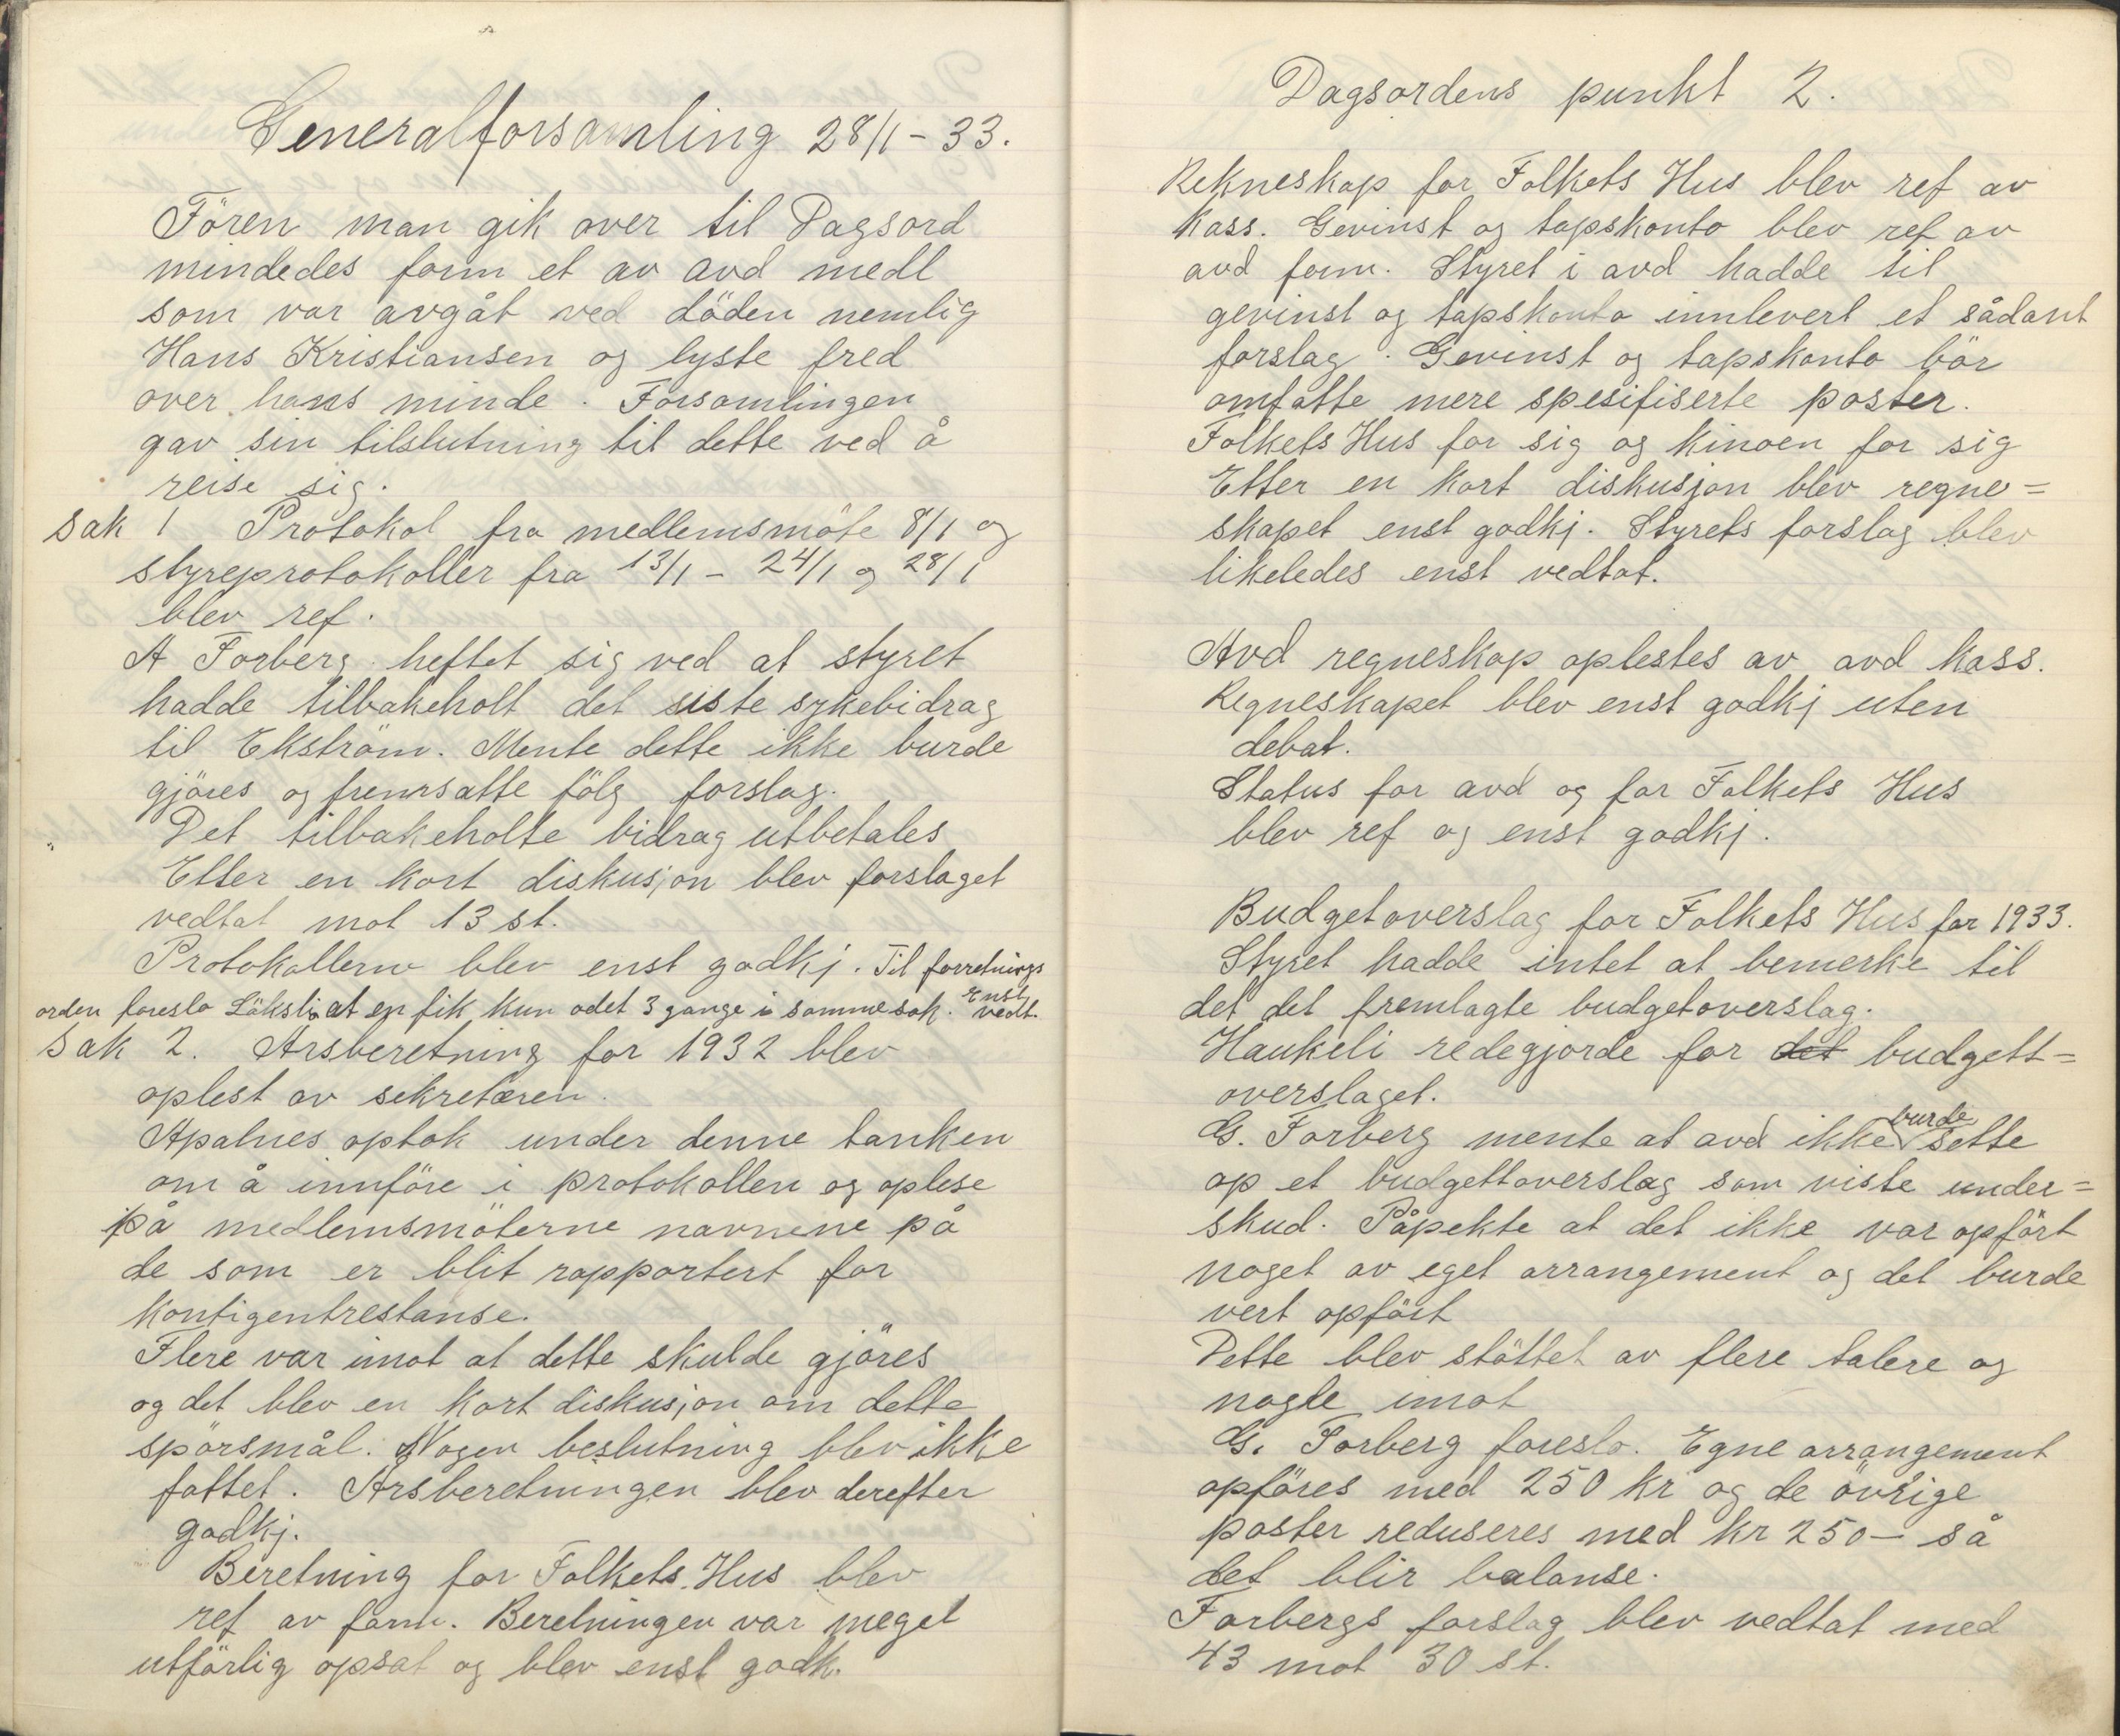 Generalforsamling 28/1 - 33.
Fören man gik over til Dagsord
mindedes form et av avd medl
som var avgåt ved döden nemlig
Hans Kristiansen og lyste fred
over hans minde. Forsamlingen
gav sin tilslutning til dette ved å
reise sig.
Sak 1 Protokol fra medlemsmöte 8/1 og
styreprotokoller fra 13/1 - 24/1 og 28/1
blev ref.
A Forberg heftet sig ved at styret
hadde tilbakeholt det siste sykebidrag
til Ekström. Mente dette ikke burde
gjöres og fremsatte fölg forslag.
Det tilbakeholte bidrag utbetales
Etter en kort diskusjon blev forslaget
vedtat mot 13 st.
Protokollerne blev enst godkj. Til forretnings
orden foreslo at en fik kun odet 3 gange i samme sak. Enst vedt.
Sak 2. Årsberetning for 1932 blev
oplest av sekretæren.
Apalnes optok under denne tanken
om å innföre i protokollen og oplese
på medlemsmöterne navnene på
de som er blit rapportert for
kontigentrestanse.
Flere var imot at dette skulde gjöres
og det blev en kort diskusjon om dette
spörsmål. Nogen beslutning blev ikke
fattet. Årsberetningen blev derefter
godkj.
Beretning for Folkets Hus blev
ref av form. Beretningen var meget
utförlig opsat og blev enst godk.
Dagsordens punkt 2.
Rekneskap for Folkets Hus blev ref av
Kass. Gevinst og tapskonto blev ref av
avd form. Styret i avd hadde til
gevinst og tapskonto innlevert et sådant
forslag. Gevinst og tapskonto bör
omfatte mere spesifiserte poster.
Folkets Hus for sig og Kinoen for sig
Etter en kort diskusjon blev regne=
skapet enst godkj. Styrets forslag blev
likeledes enst vedtat.
Avd regneskap oplestes av avd kass.
Regneskapet blev enst godkj uten
debat.
Status for avd og for Folkets Hus
blev ref og enst godkj.
Budgetoverslag for Folkets Hus for 1933.
Styret hadde intet at bemerke til
det det fremlagte budgetoverslag.
Haukeli redegjorde for det budgett=
overslaget.
G. Forberg mente at avd ikke burde sette
op et budgettoverslag som viste under=
skud. Påpekte at det ikke var opfört
noget av eget arrangement og det burde
vert opfört
Dette blev stöttet av flere talere og
nogle imot
G. Forberg foreslo. Egne arrangement
opföres med 250 kr og de övrige
poster reduseres med kr 250 - så
det blir balanse.
Forbergs forslag blev vedtat med
43 mot 30 st.